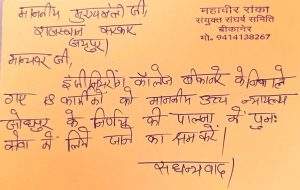 माननीय मुख्यमंत्री जी,
राजस्थान सरकार
जयपुर।
महावीर रांका
संयुक्त संघर्ष समिति
बीकानेर
मो. 9414138267
मान्यवर जी,
इंजीनियरिंग कॉलेज बीकानेर के निकाले
गए 18 कार्मिकों को माननीय उच्च न्यायालय
जोधपुर के निर्णय की पालना में पुनः
सेवा में लिये जाने का श्रम करें।
सधन्यवाद।